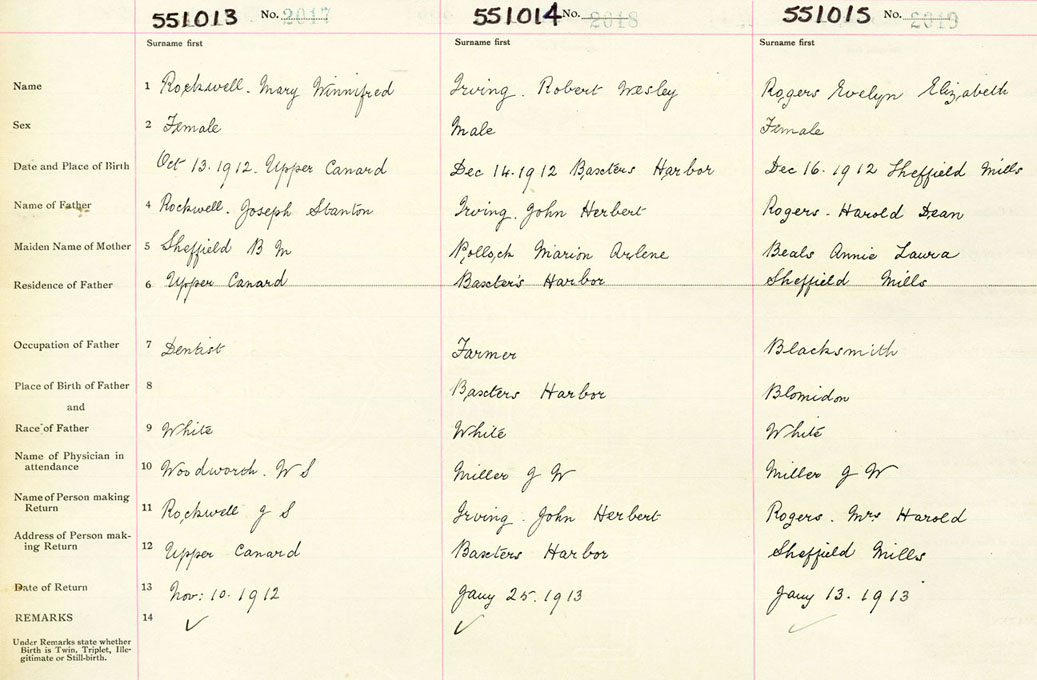 551013 No. 2017 551014 No. 2018 551015 No. 2019
Surname first Surname first Surname first
Name 1 Rockwell. Mary Winnifred Irving. Robert Wesley Rogers Evelyn Elizabeth
Sex 2 Female Male Female
Date and Place of Birth 3 Oct 13. 1912. Upper Canard Dec 14. 1912 Baxters Harbor Dec 16. 1912 Sheffield Mills
Name of Father 4 Rockwell. Joseph Stanton Irving. John Herbert Rogers. Harold Dean
Maiden Name of Mother 5 Sheffield B M Pollock Marion Arlene Beals Annie Laura
Residence of Father 6 Upper Canard Baxter's Harbor Sheffield Mills
Occupation of Father 7 Dentist Farmer Blacksmith
Place of Birth of Father 8 Baxters Harbor Blomidon
and
Race of Father 9 White White White
Name of Physician in
attendance 10 Woodworth. W S Miller J W Miller J W
Name of Person making
Return 11 Rockwell J S Irving. John Herbert Rogers. Mrs Harold
Address of Person mak-
ing Return 12 Upper Canard Baxters Harbor Sheffield Mills
Date of Return 13 Nov: 10. 1912 Jany 25. 1913 Jany 13. 1913
REMARKS 14 ✓ ✓ ✓
Under Remarks state whether
Birth is Twin, Triplet, Ille-
gitimate or Still-birth.